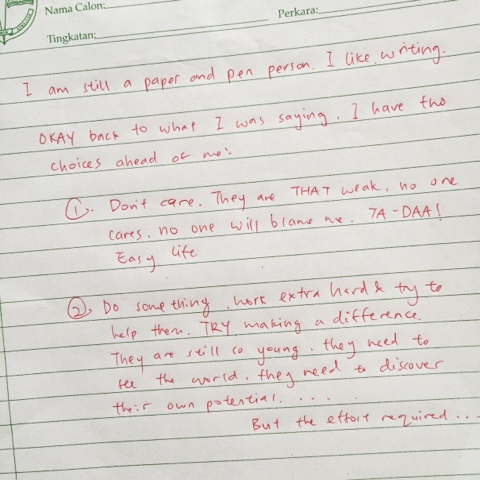 Nama Calon:
Perkara:
Tingkatan:
I am still a paper and pen person. I like writing.
OKAY back to what I was saying. I have two
choices ahead of me:
1. Don't care. They are THAT weak, no one
cares. no one will blame me. TA-DAA!
Easy life
2. Do something. Work extra hard & try to
help them. TRY making a difference.
They are still so young. they need to
see the world. they need to discover
their own potential. . . .
But the effort required ...